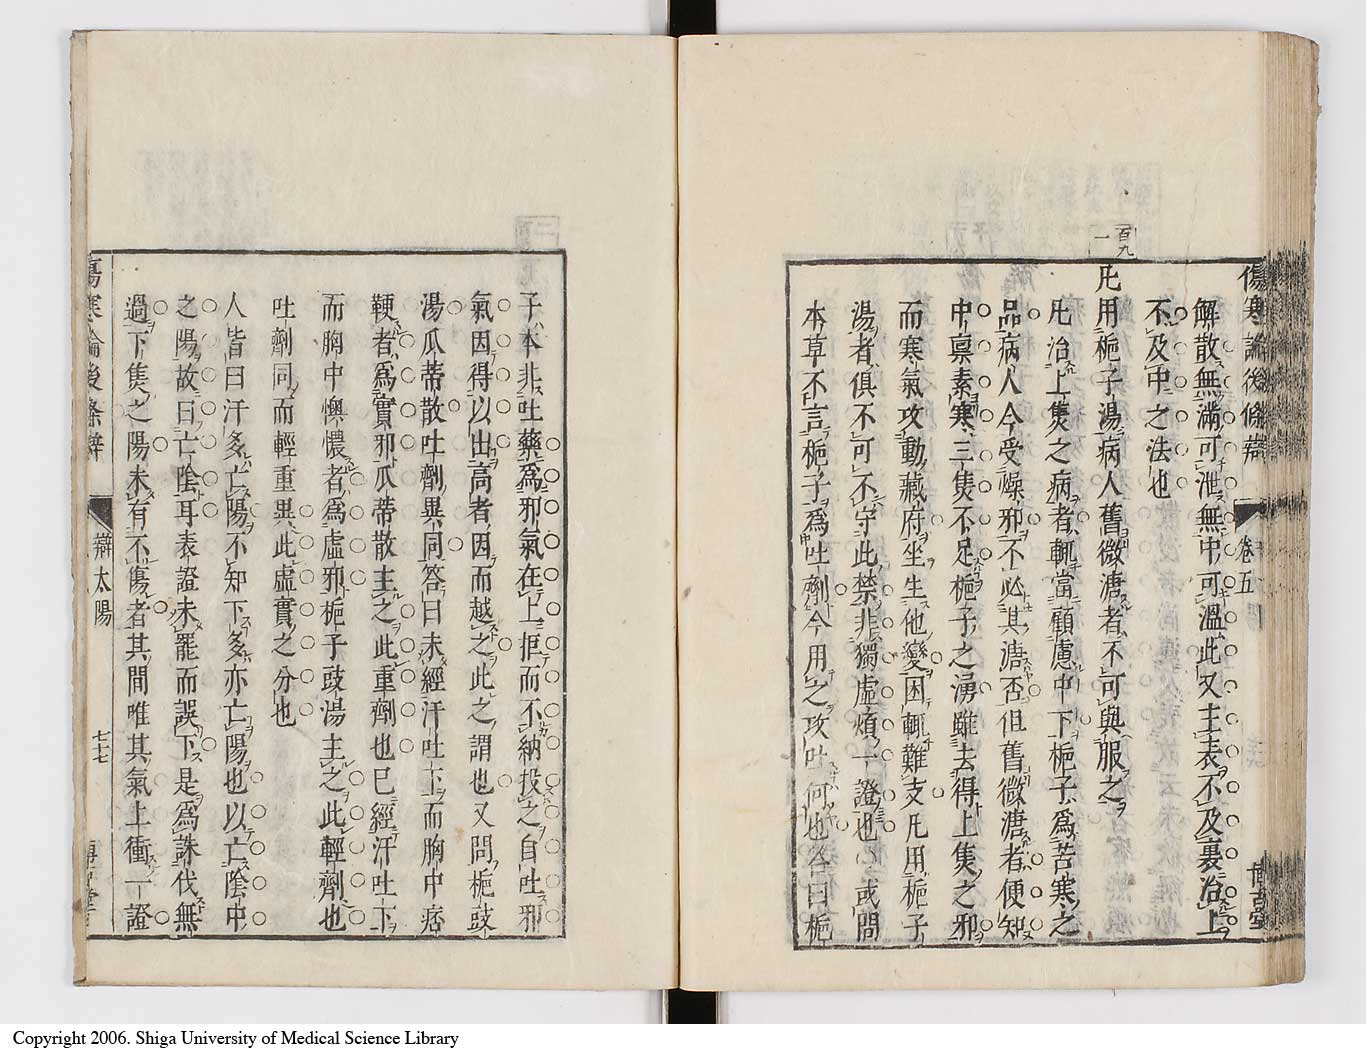 傷寒論後條辯
卷五
解散無滿可泄無中可溫此又主表不及裏治上
不及中之法也
百九一
凡用梔子湯病人舊微溏者不可與服之
凡治上焦之病者輒當顧慮中下梔子為苦寒之
品病人今受燥邪不必其溏否但舊微溏者便知
中稟素寒三焦不足梔子之湧雖去得上焦之邪
而寒氣攻動藏府坐生他變困輒難支凡用梔子
湯者俱不可不守此禁非獨虛煩一證也或問
本草不言梔子為吐劑今用之攻吐何也答曰梔
子本非吐藥為邪氣在上拒而不納投之自吐邪
氣因得以出高者因而越之此之謂也又問梔豉
湯瓜蒂散吐劑異同答曰未經汗吐下而胸中痞
鞕者為實邪瓜蒂散主之此重劑也已經汗吐下
而胸中懊憹者為虛邪梔子豉湯主之此輕劑也
吐劑同而輕重異此虛實之分也
人皆曰汗多亡陽不知下多亦亡陽也以亡陰中
之陽故曰亡陰耳表證未罷而誤下是為誅伐無
過下焦之陽未有不傷者其間唯其氣上衝一證
傷寒論後條辯
辯太陽
七七
Copyright 2006. Shiga University of Medical Science Library